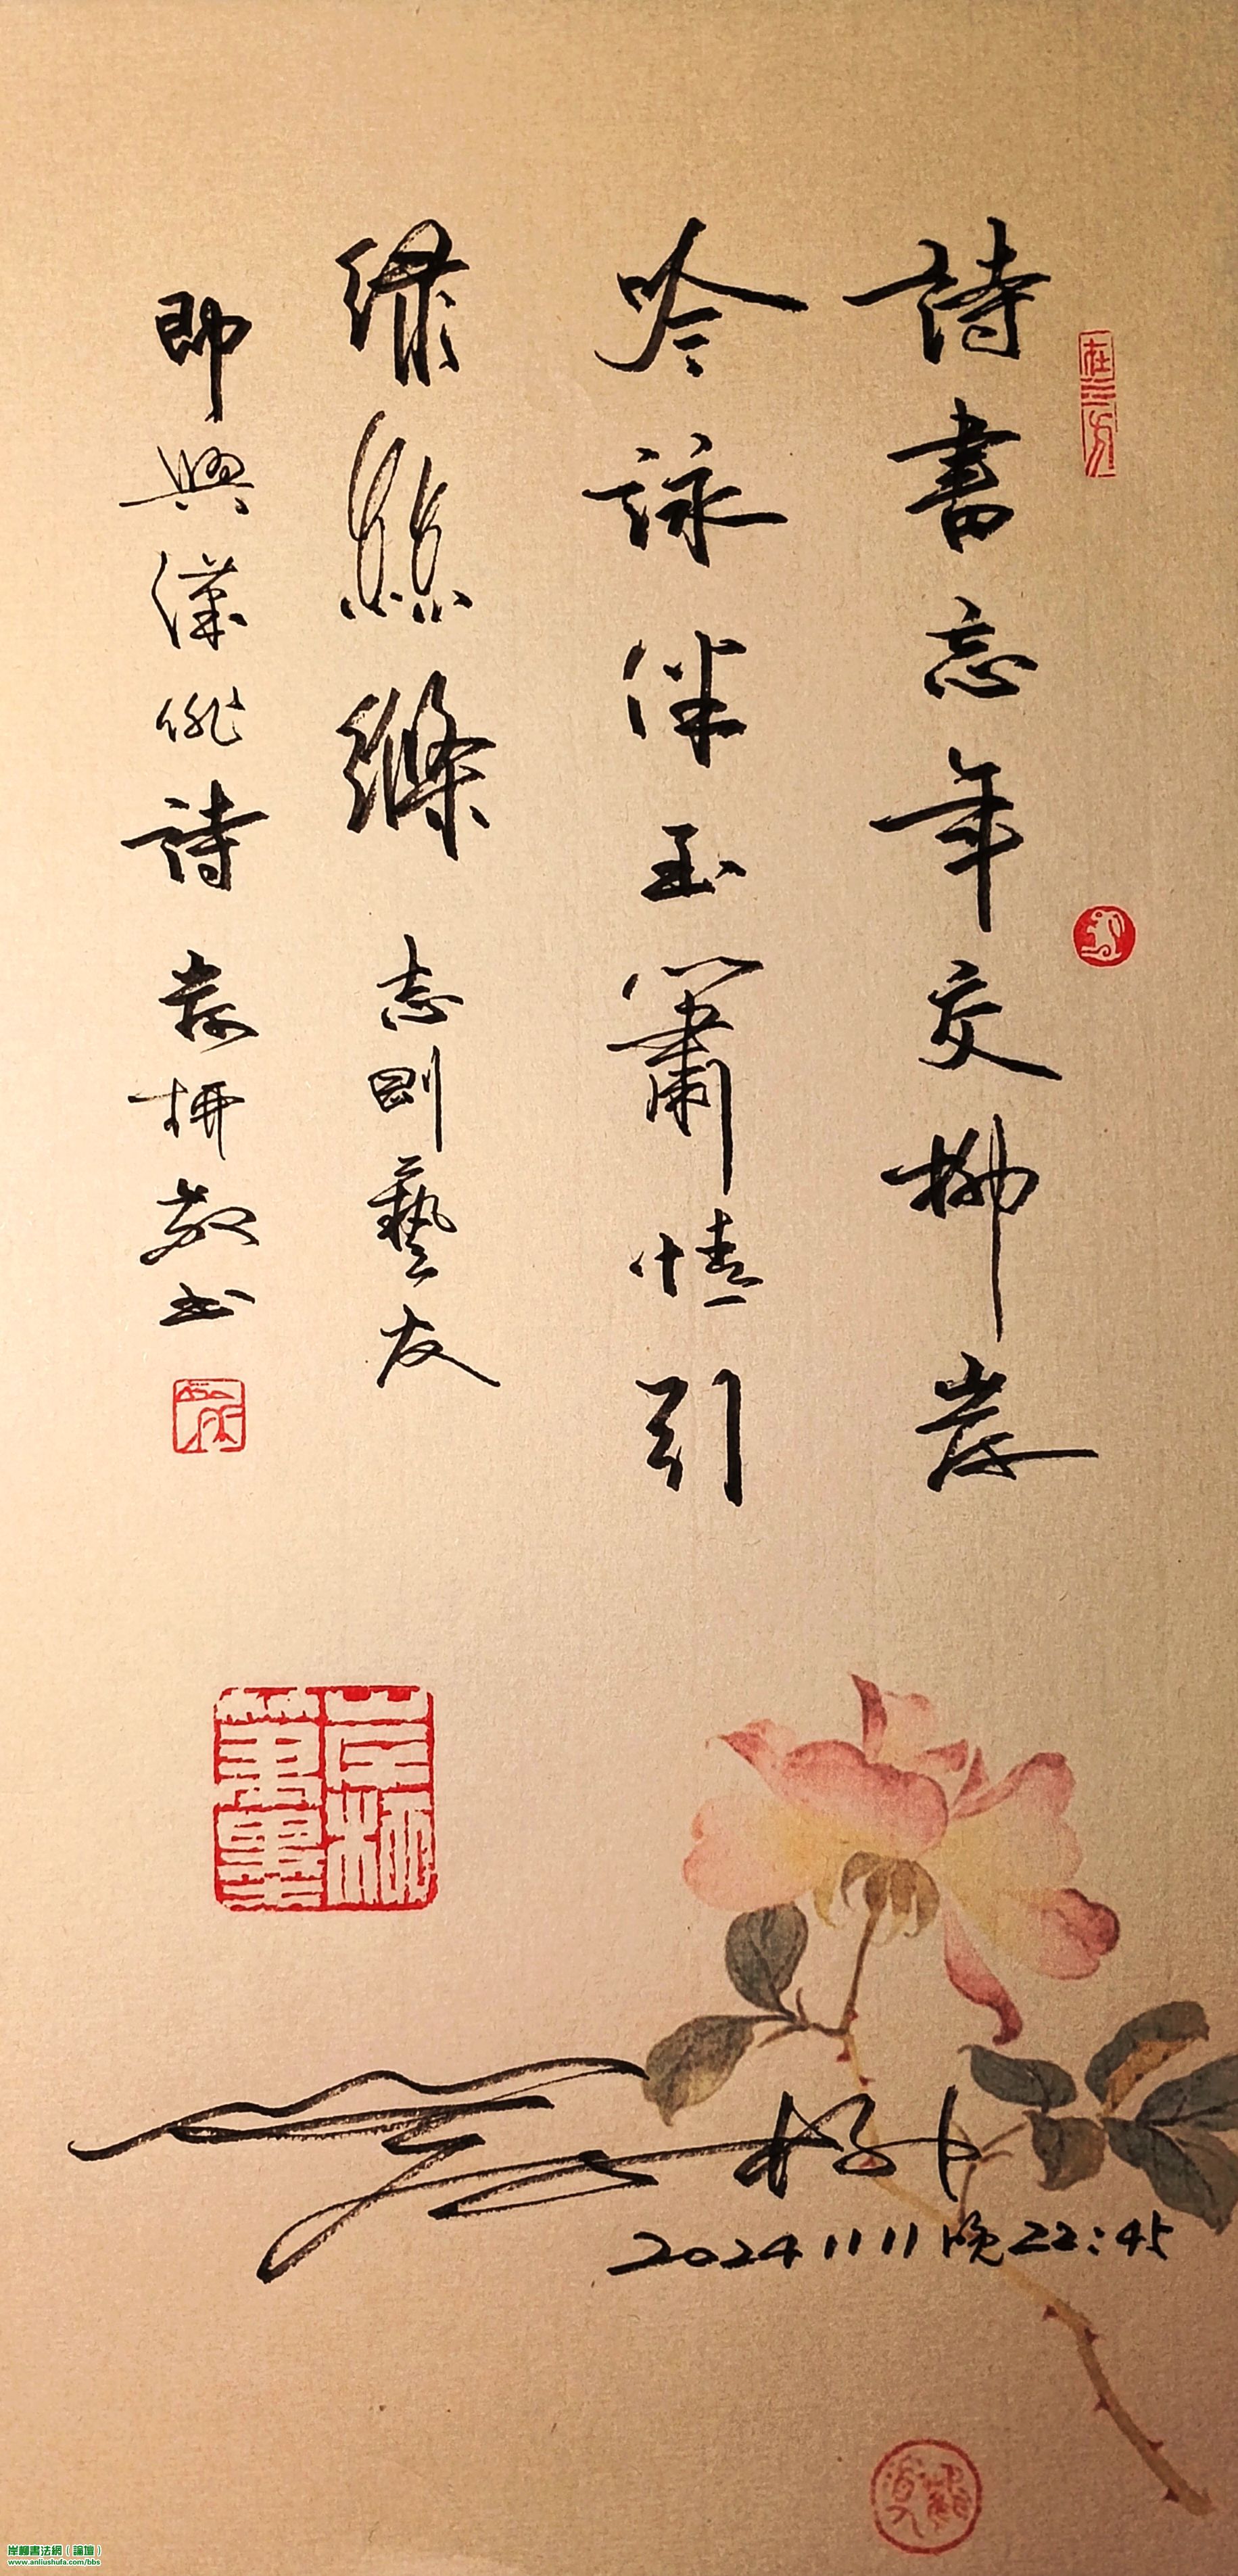 詩書忘年交柳岸
吟詠伴玉簫情引
綠絲縧 志剛藝友
即興漢俳詩 岸柳敬书
岸柳
筆墨
2024 11 11 晚 22:45
岸柳書法網（論壇）
www.anliushufa.com/bbs